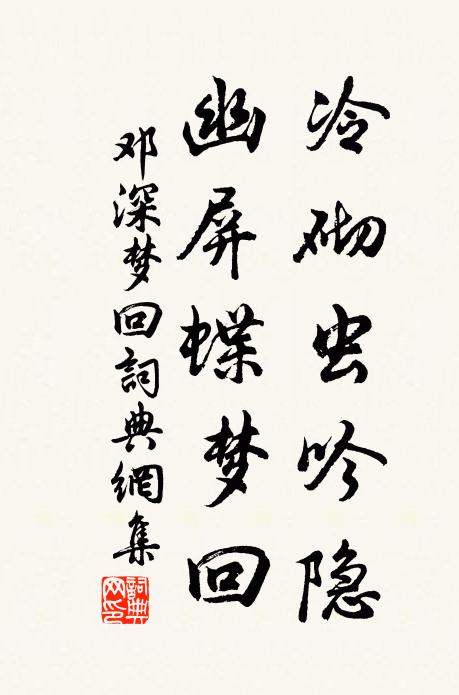 冷砌虫吟隐
幽屏蝶梦回
邓深梦回詞典網集
詞典網印